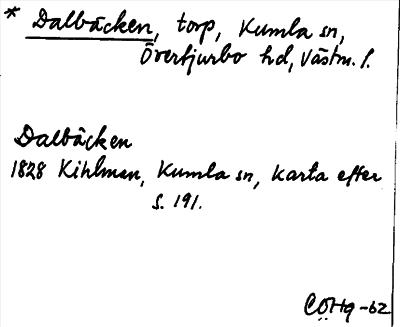 * Dalbäcken, torp, Kumla sn,
Övertjurbo hd, Västm. l.
Dalbäcken
1828 Kihlman, Kumla sn, Karta efter
s. 191.
CÖHg -62